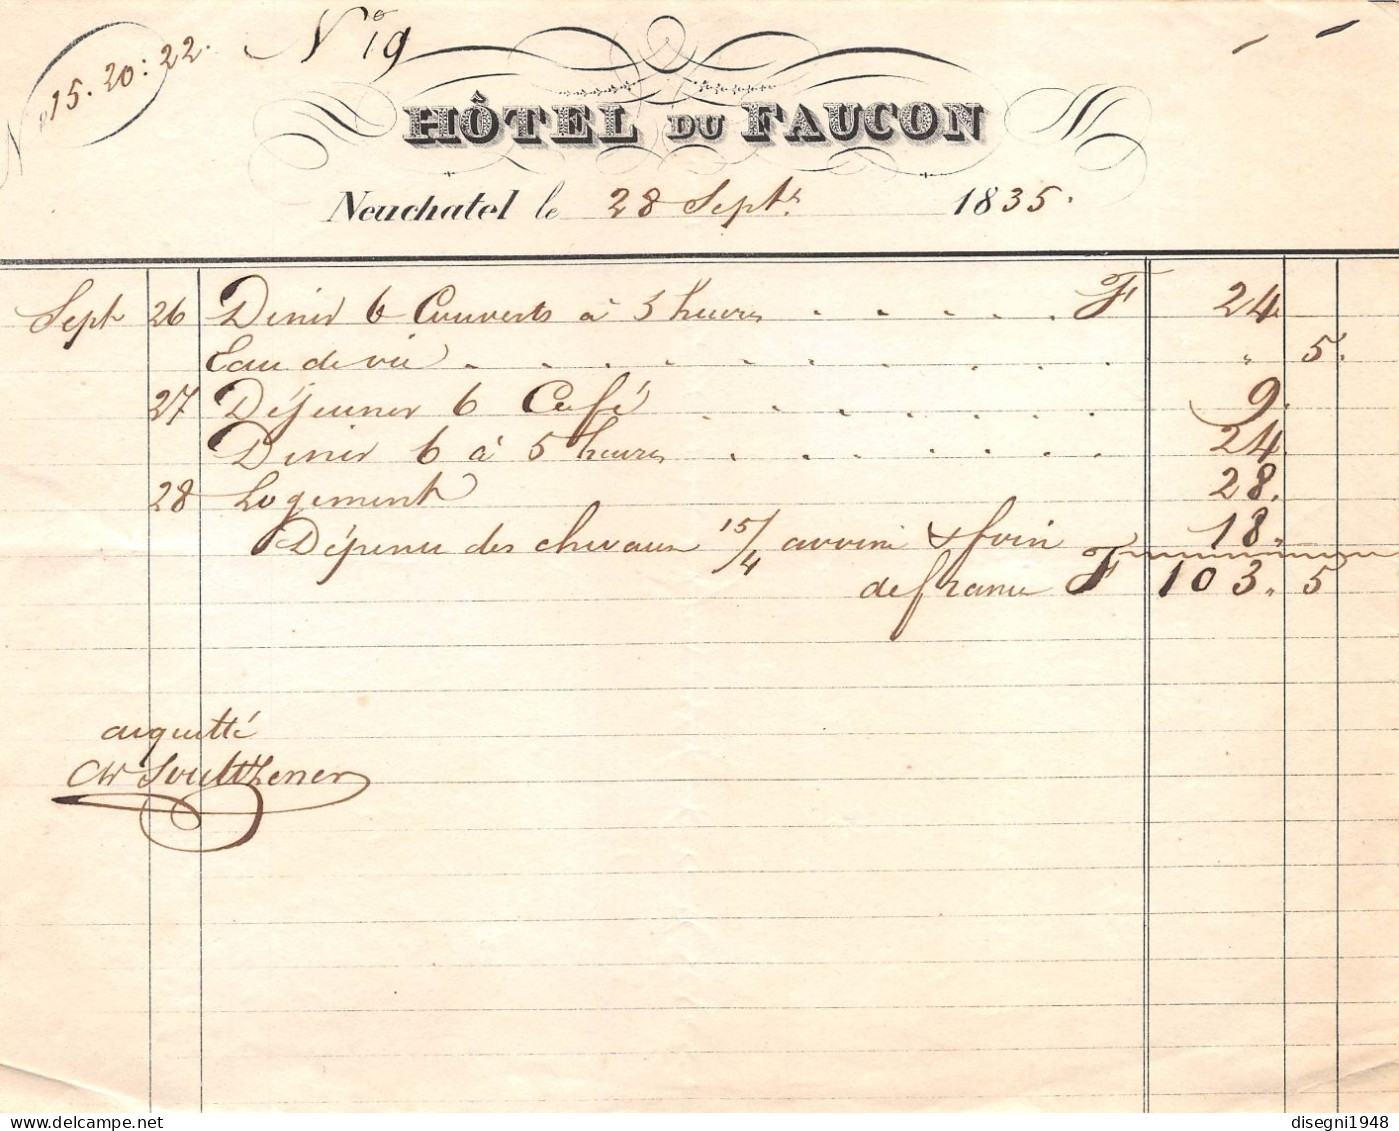 N° 15. 20: 22.
N° 19
HÔTEL DU FAUCON
Neuchatel le 28 Septr. 1835.
Sept 26 Diner 6 Couverts à 5 heures . . . . . F 24.
Eau de vie . . . . . . . . . " 5.
27 Déjeuner 6 Café . . . . . . 9.
Diner 6 à 5 heures . . . . . . 24.
28 Logement 28.
Dépense des chevaux 15/4 avoine & foin 18.
de france F 103. 5
acquitté
Soultzener
disegni1948
delcampe.net